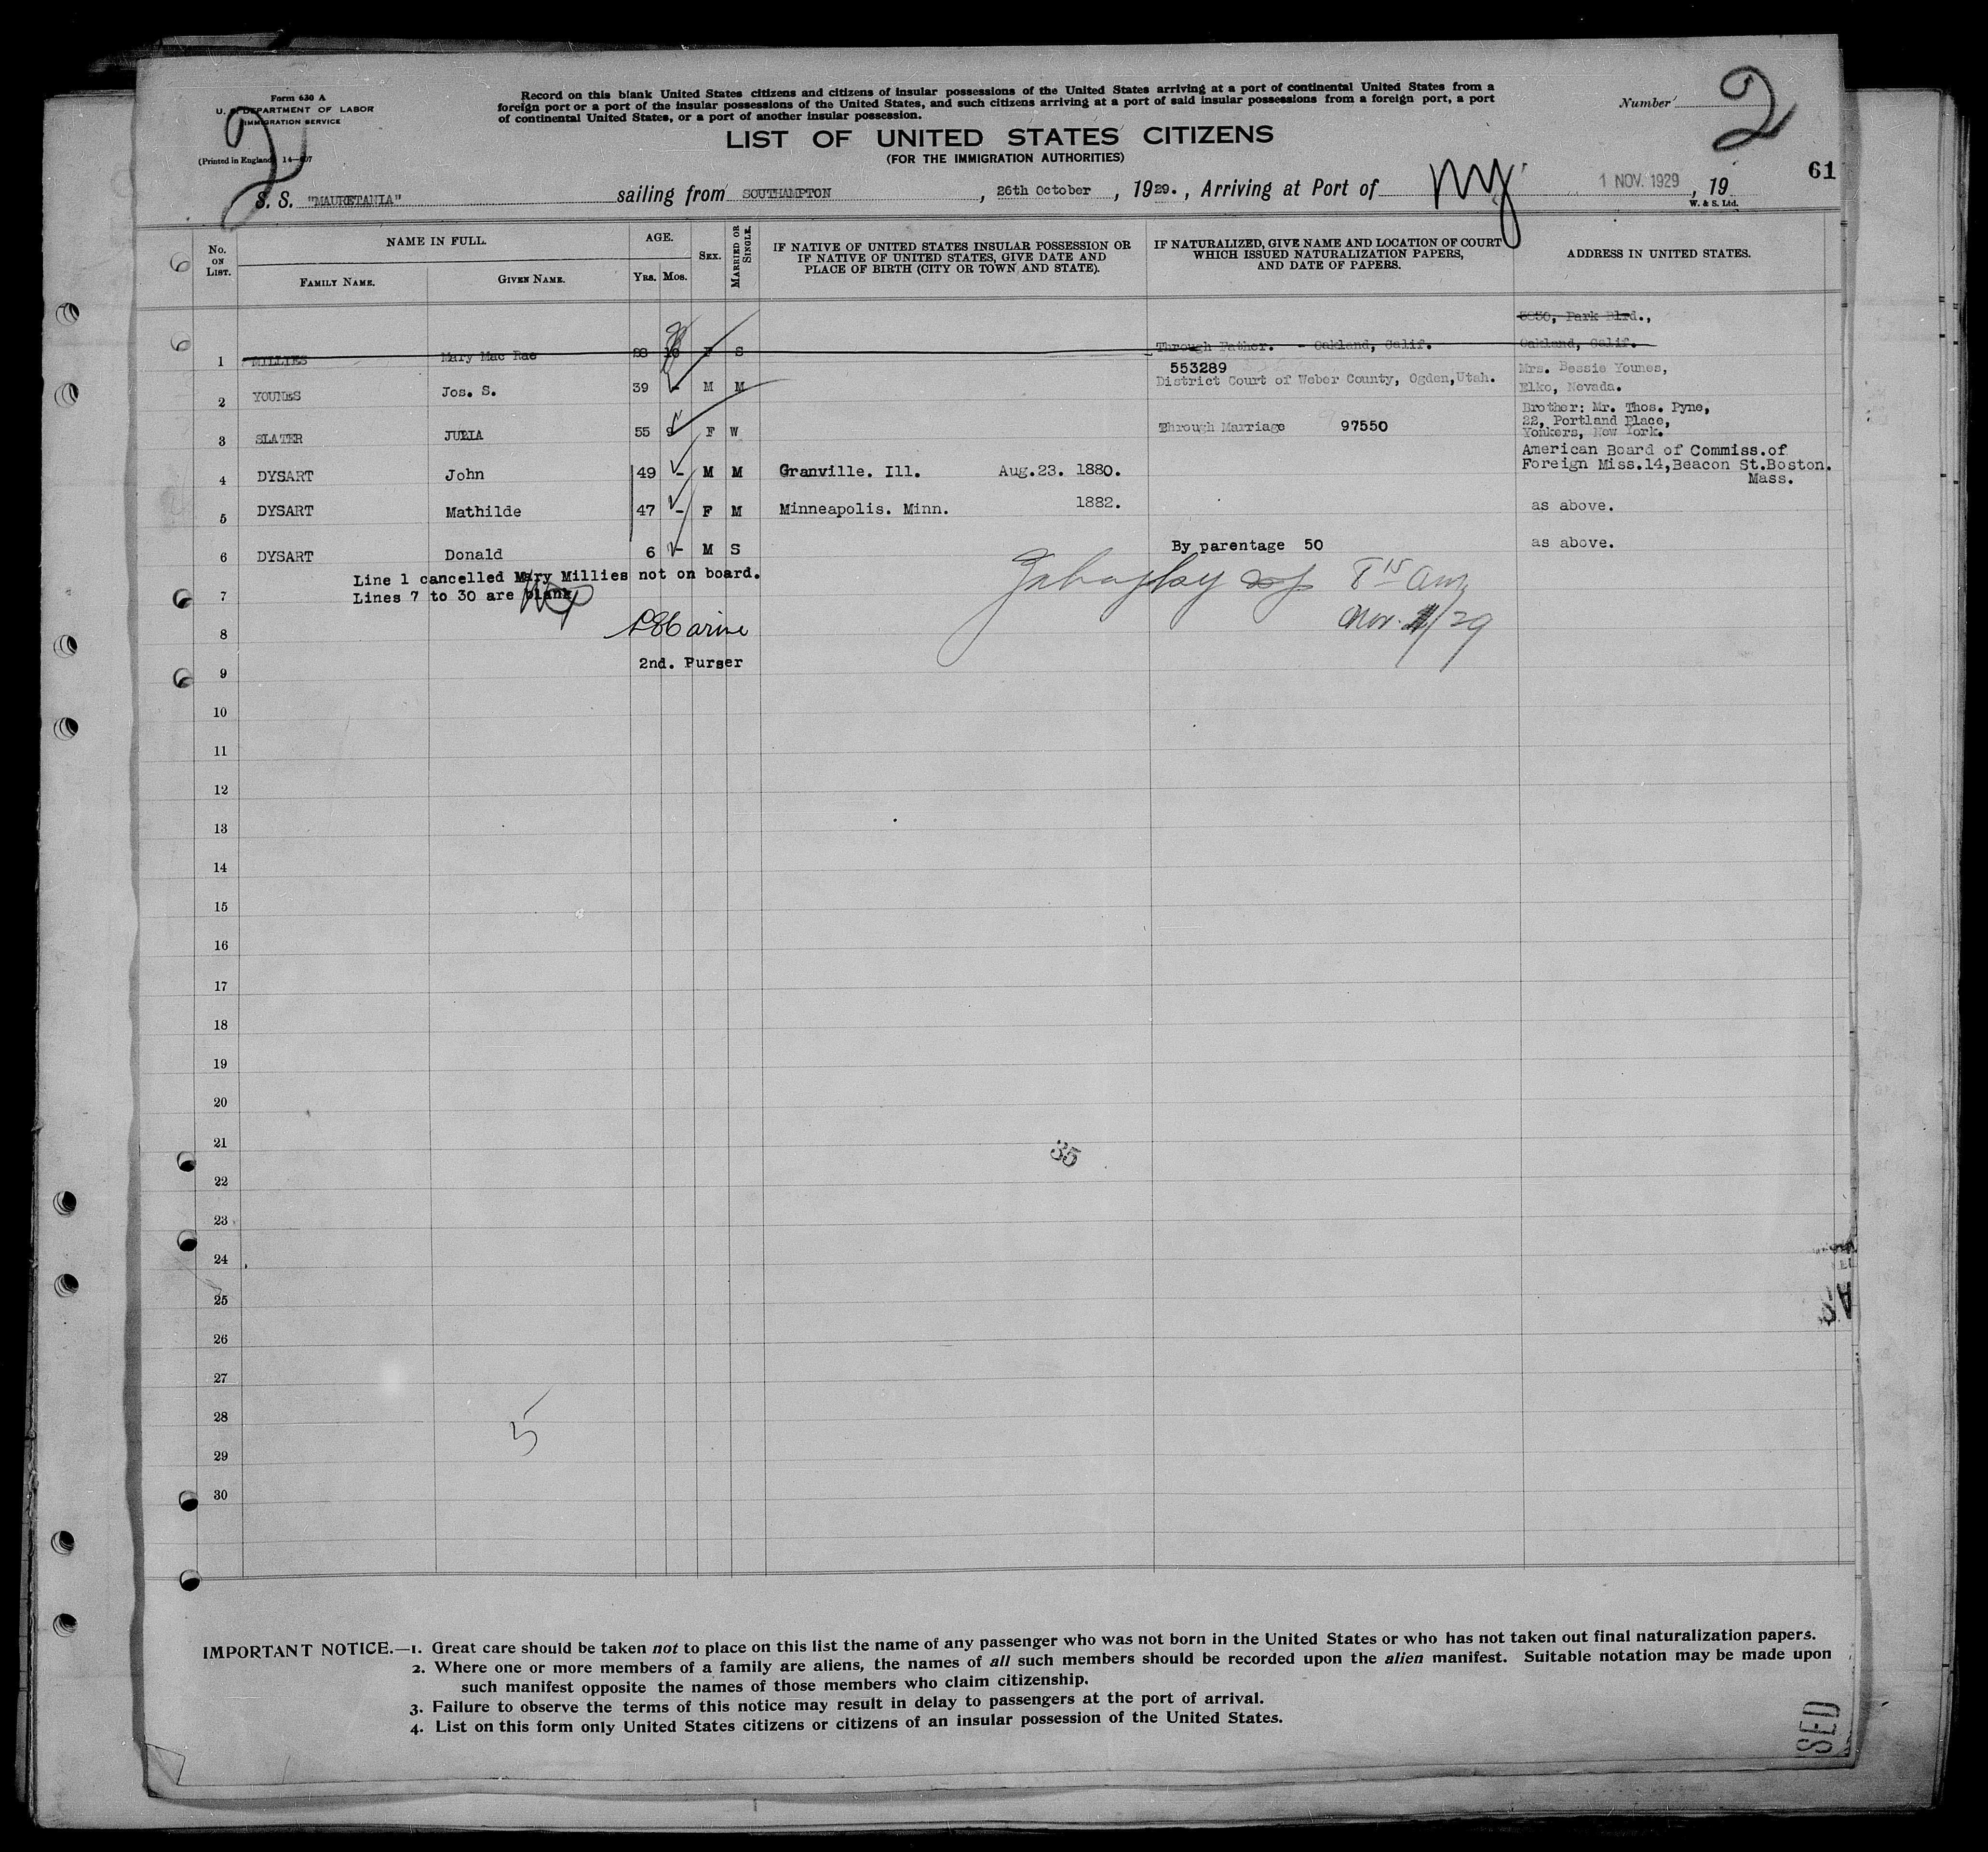 Form 630 A
U. S. DEPARTMENT OF LABOR
IMMIGRATION SERVICE
(Printed in England)
2
Record on this blank United States citizens and citizens of insular possessions of the United States arriving at a port of continental United States from a
foreign port or a port of the insular possessions of the United States, and such citizens arriving at a port of said insular possessions from a foreign port, a port
of continental United States, or a port of another insular possession.
Number 2
LIST OF UNITED STATES CITIZENS
(FOR THE IMMIGRATION AUTHORITIES)
61
S. S. "MAURETANIA" sailing from SOUTHAMPTON, 26th October, 1929., Arriving at Port of NY 1 NOV. 1929, 19
W. & S. Ltd.
No. ON LIST. NAME IN FULL. FAMILY NAME. GIVEN NAME. AGE. YRS. MOS. SEX. MARRIED OR SINGLE. IF NATIVE OF UNITED STATES INSULAR POSSESSION OR IF NATIVE OF UNITED STATES, GIVE DATE AND PLACE OF BIRTH (CITY OR TOWN AND STATE). IF NATURALIZED, GIVE NAME AND LOCATION OF COURT WHICH ISSUED NATURALIZATION PAPERS, AND DATE OF PAPERS. ADDRESS IN UNITED STATES.
Park Blvd.,
1 MILLIES Mary Mac Rae F S Through Father. - Oakland, Calif. Oakland, Calif.
553289 Mrs. Bessie Younes,
2 YOUNES Jos. S. 39 - M M District Court of Weber County, Ogden, Utah. Elko, Nevada.
Brother: Mr. Thos. Pyne,
3 SLATER JULIA 55 9 F W Through Marriage 97550 22, Portland Place,
Yonkers, New York.
American Board of Commiss.of
4 DYSART John 49 - M M Granville. Ill. Aug.23. 1880. Foreign Miss.14,Beacon St.Boston.
Mass.
5 DYSART Mathilde 47 - F M Minneapolis. Minn. 1882. as above.
6 DYSART Donald 6 - M S By parentage 50 as above.
Line 1 cancelled Mary Millies not on board.
7 Lines 7 to 30 are blank
8 15 am
Nov. 1/29
8
9 2nd. Purser
10
11
12
13
14
15
16
17
18
19
20
21
35
22
23
24
25
26
27
28
5
29
30
IMPORTANT NOTICE.—1. Great care should be taken not to place on this list the name of any passenger who was not born in the United States or who has not taken out final naturalization papers.
2. Where one or more members of a family are aliens, the names of all such members should be recorded upon the alien manifest. Suitable notation may be made upon
such manifest opposite the names of those members who claim citizenship.
3. Failure to observe the terms of this notice may result in delay to passengers at the port of arrival.
4. List on this form only United States citizens or citizens of an insular possession of the United States.
SED